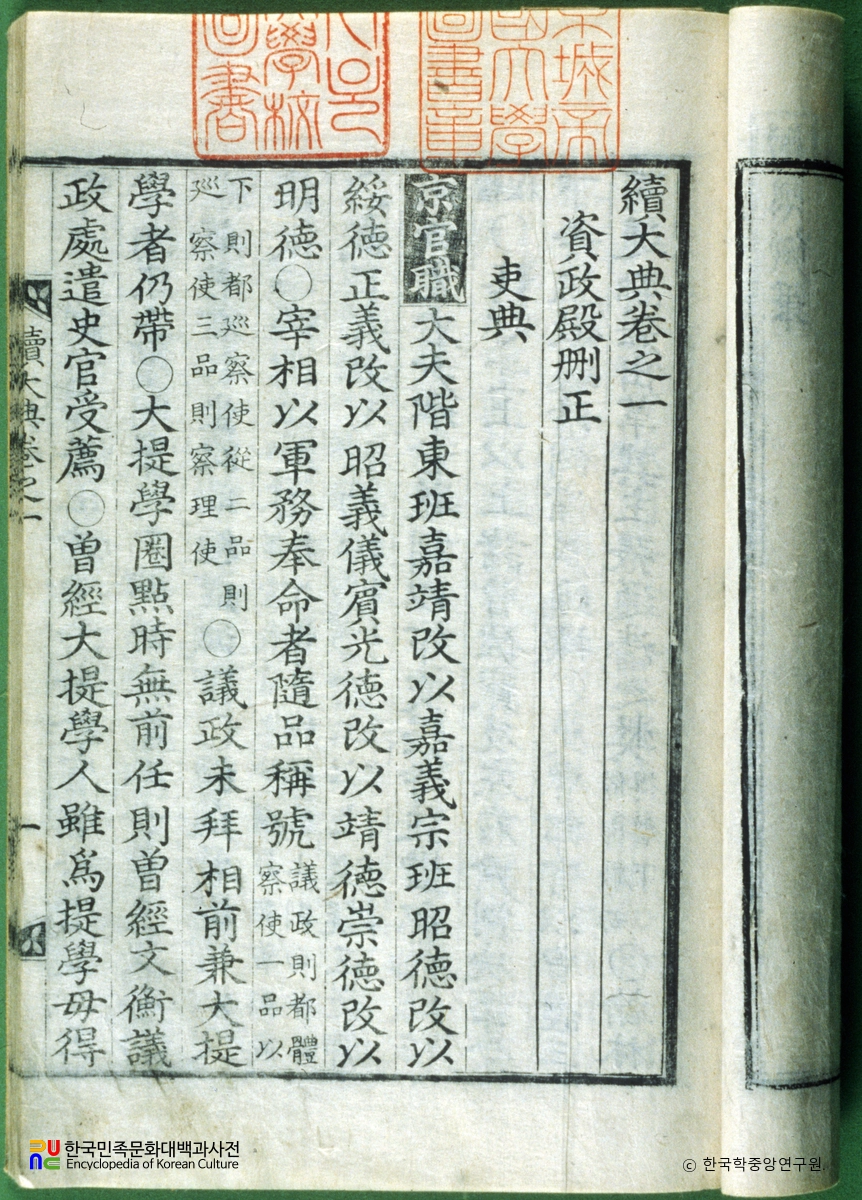 京城帝
國大學
圖書章
學校
圖書
續大典卷之一
資政殿删正
吏典
京官職大夫階東班嘉靖改以嘉義宗班昭德改以
綏德正義改以昭義儀賓光德改以靖德崇德改以
明德○宰相以軍務奉命者隨品稱號議政則都體察使一品以
下則都巡察使從二品則巡察使三品則察理使○議政未拜相前兼大提
學者仍帶○大提學圈點時無前任則曾經文衡議
政處遣史官受薦○曾經大提學人雖爲提學毋得
續大典卷之一
一
한국민족문화대백과사전
Encyclopedia of Korean Culture
ⓒ 한국학중앙연구원